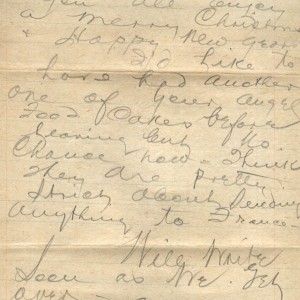 You all enjoy
a Merry Christmas
& Happy New Year
I'd like to
have had another
one of your angel
Food Cakes before
leaving but no
Chance now - I think
they are pretty
strict about sending
anything to France -
Will write
soon as we get
over